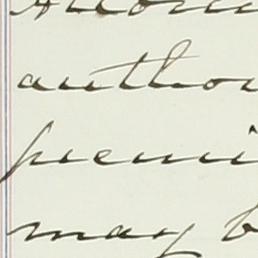 autho
premi
may b